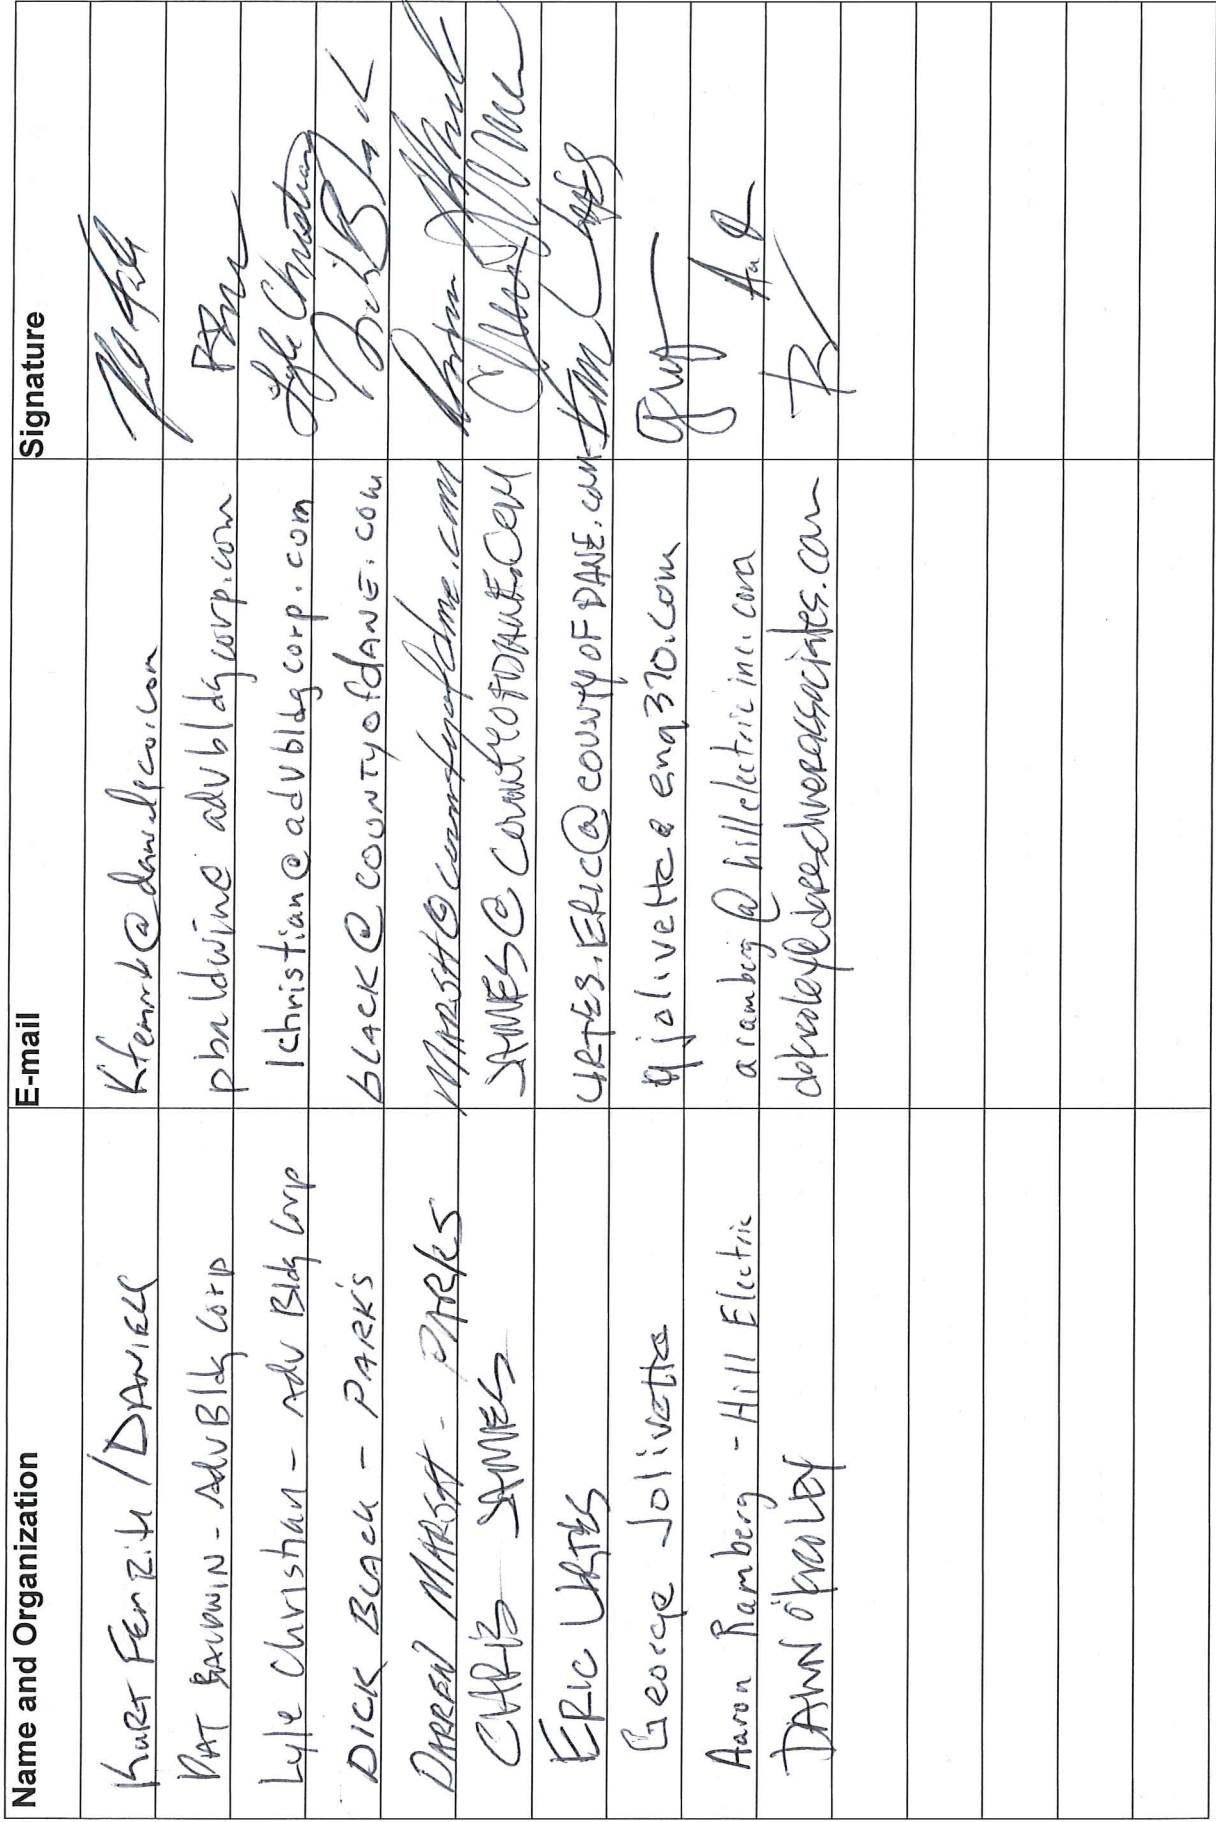 Name and Organization E-mail Signature
KURT /DANIELL
PAT BALDWIN - Adv Bldg Corp pbaldwin@advbldgcorp.com
Lyle Christian - Adv Bldg Corp lchristian@advbldgcorp.com Lyle Christian
DICK BLACK - PARK'S bLACK@COUNTYOfdANE.COM Dick Black
DARREN MARSH - PARKS MARSH@countyofdane.com
CHRIS JAMES JAMES@COUNTYOFDANE.COM
ERIC URTES URTES.ERIC@COUNTYOFDANE.COM
George Jolivette gjolivette@eng370.com
Aaron Ramberg - Hill Electric aramberg@hillelectricinc.com
DAWN O'KROLEY